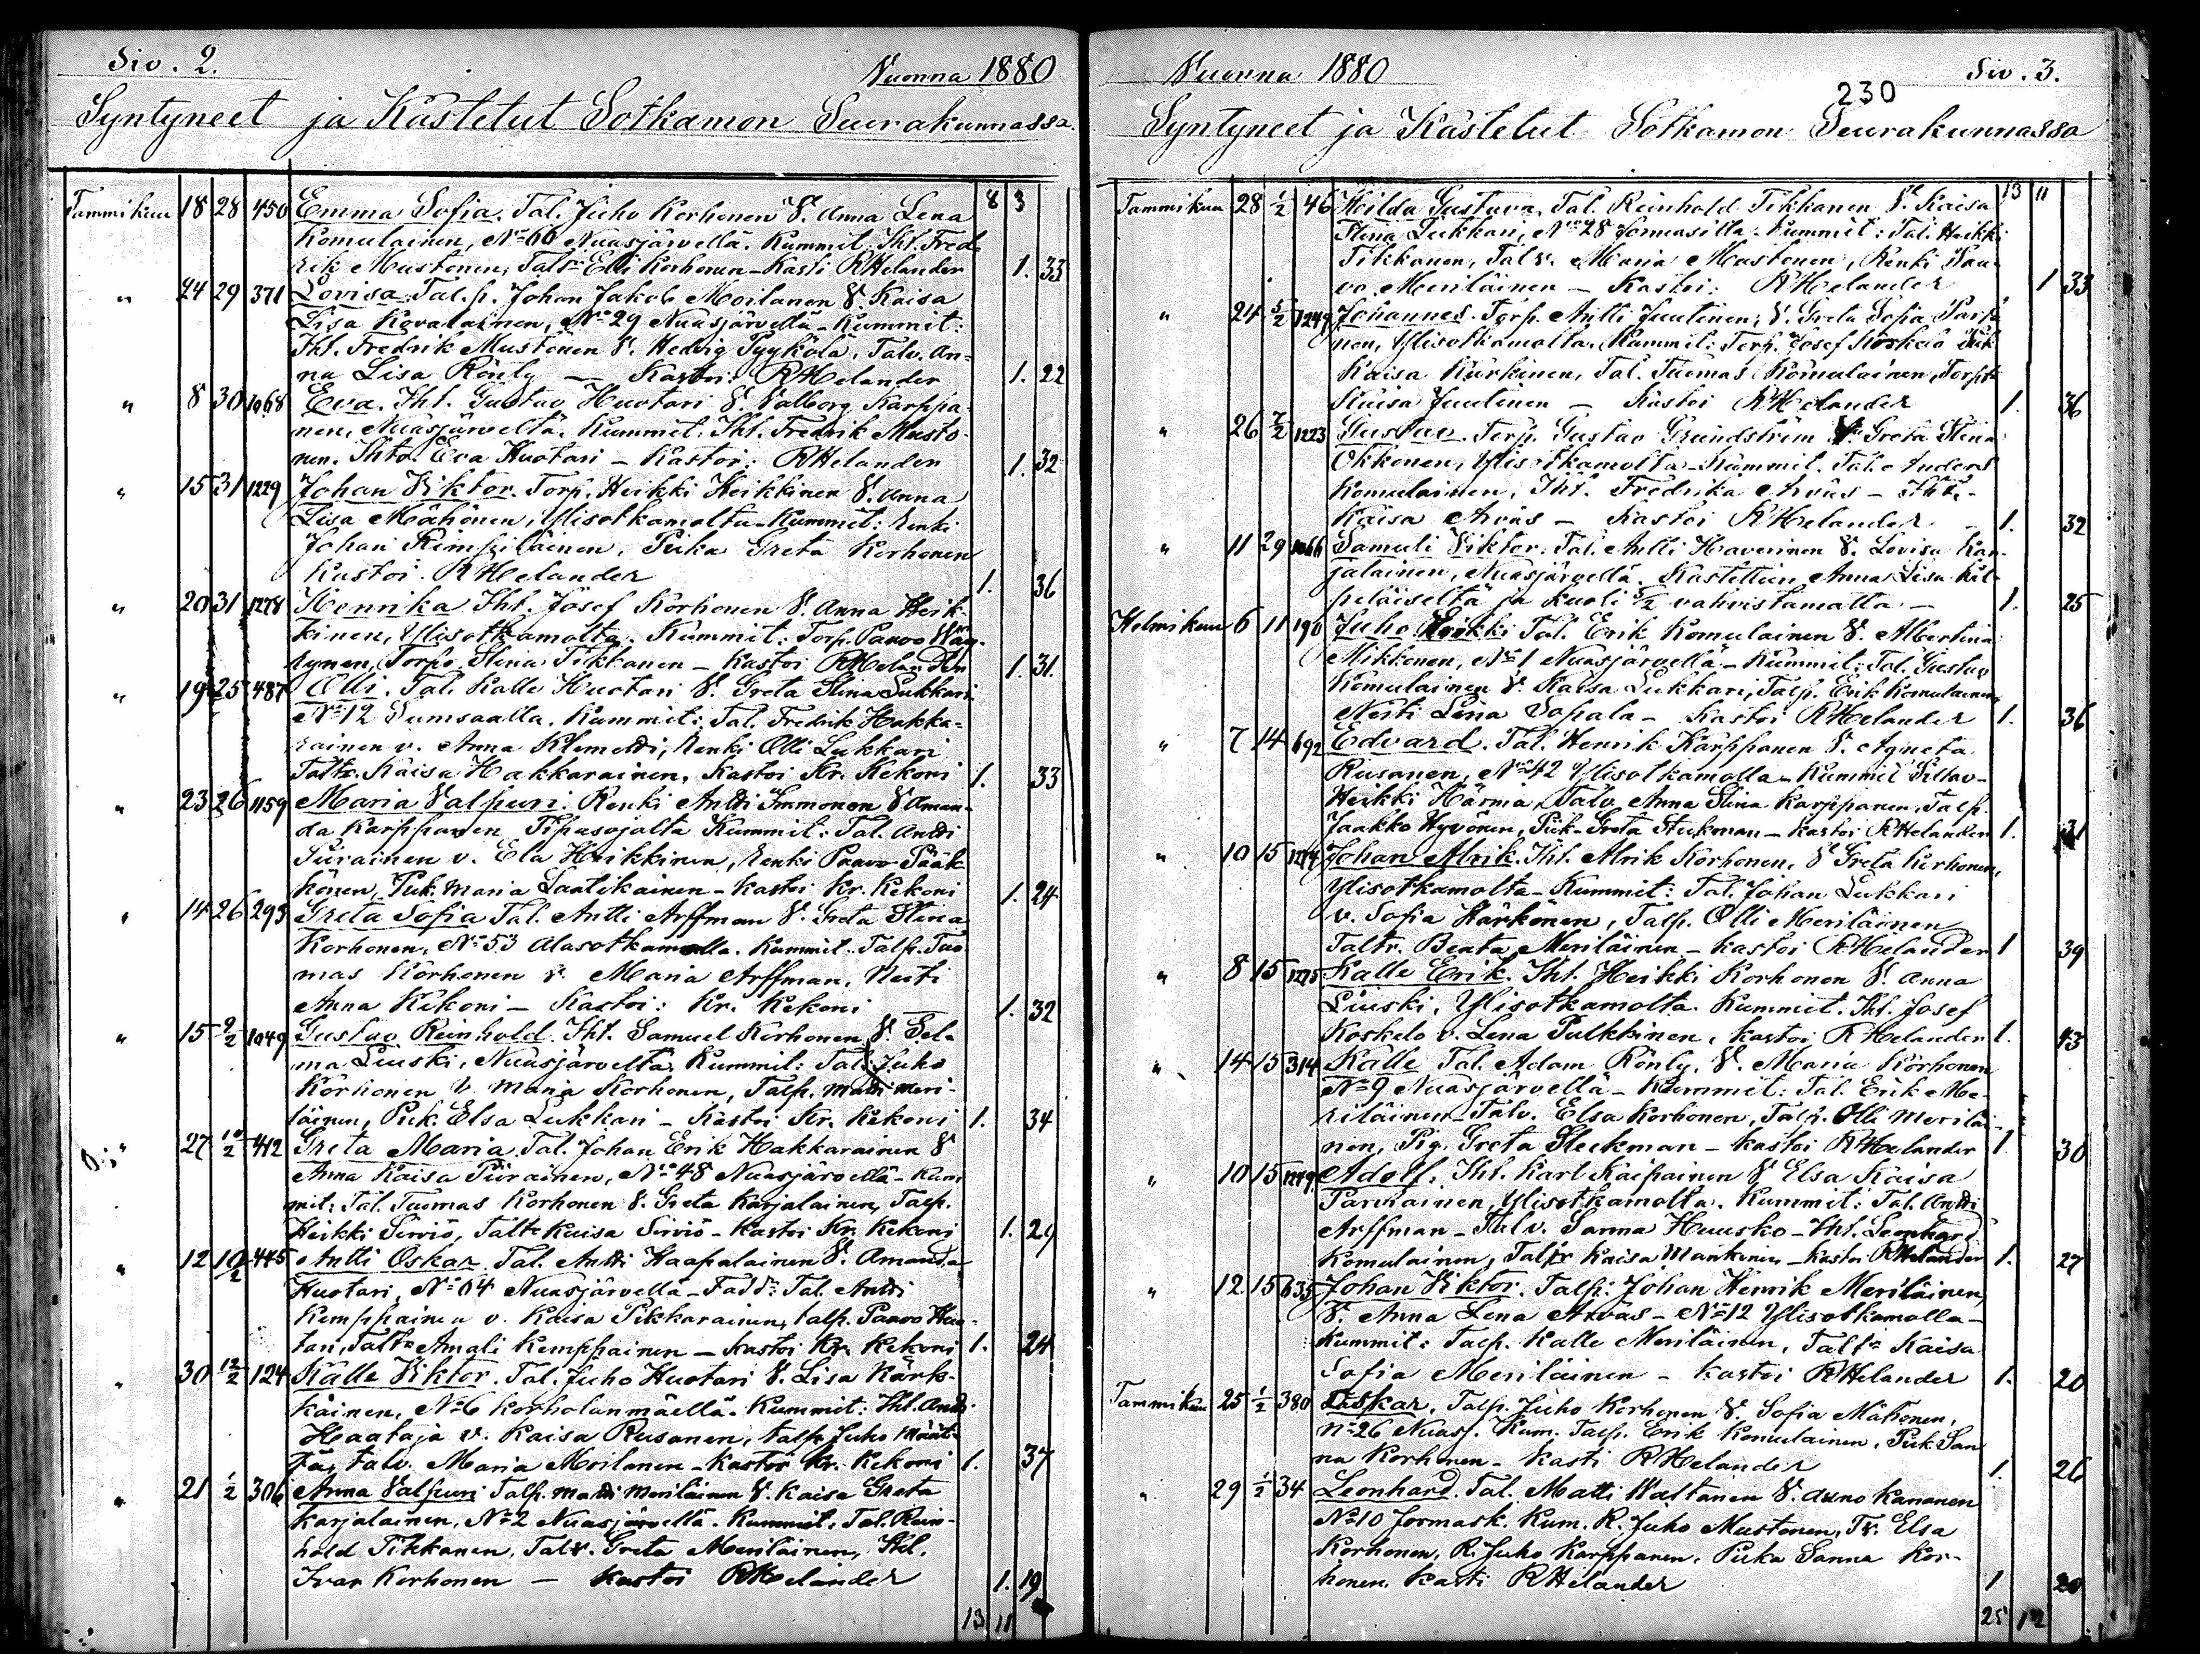 Siv. 2.
Vuonna 1880
Syntyneet ja Kastetut Sotkamon Seurakunnassa.
8 3
Tammikuu 18 28 450 Emma Sofia. Tal. Juho Korhonen V. Anna Lena
Komulainen, No 66 Nuasjärvellä. Kummit: Iht. Fred-
rik Mustonen, Taltr Elli Korhonen - Kasti RHelander 1. 33
" 24 29 371 Lovisa. Tal.p. Johan Jakob Moilanen V. Kaisa
Lisa Kovalainen, No 29 Nuasjärvellä - Kummit:
Iht. Fredrik Mustonen V. Hedvig Pyykölä, Talv. An-
na Lisa Rönty — Kastoi: RHelander 1. 22
" 8 30 1068 Eva. Iht. Gustav Huotari V. Valborg Karppa-
nen, Nuasjärveltä. Kummit: Iht. Fredrik Musto-
nen. Ihtr. Eva Huotari - Kastoi: RHelander 1. 32
" 15 31 1229 Johan Viktor. Torp. Heikki Heikkinen V. Anna
Lisa Mähönen, Ylisotkamolta - Kummit: Renki
Johan Kimpiläinen, Piika Greta Korhonen
Kastoi. RHelander 1. 36
" 20 31 1278 Henrika Iht. Josef Korhonen V. Anna Heik-
kinen, Ylisotkamolta. Kummit: Torp. Paavo Väy-
rynen, Stina Tikkanen - Kastoi RHelander 1. 31.
" 19 25 487 Olli. Tal. Kalle Huotari V. Greta Stina Lukkari
No 12 Sumsaalla. Kummit: Tal. Fredrik Hakka-
rainen v. Anna Klemetti, Renki Olli Lukkari
Taltr. Kaisa Hakkarainen, Kastoi Kr. Kekoni 1. 33
" 23 26 1159 Maria Valpuri. Renki Antti Immonen V. Aman-
da Karppanen Tipasojalta Kummit: Tal. Antti
Piirainen v. Ela Heikkinen, Renki Paavo Pääk-
könen, Piik. Maria Laatikainen - Kastoi Kr. Kekoni 1. 24
" 14 26 293 Greta Sofia Tal. Antti Arffman V. Greta Stina
Korhonen, No 53 Alasotkamolla. Kummit. Talp. Tuo
mas Korhonen v. Maria Arffman, Neiti
Anna Kekoni - Kastoi: Kr. Kekoni 1. 32
" 15 2/2 1049 Gustav Reinhold. Iht. Samuel Korhonen V. Sel-
ma Liuski, Nuasjärveltä. Kummit: Tal. Juho
Korhonen v. Maria Korhonen, Talp. Matti Meri-
läinen, Piik. Elsa Lukkari - Kastoi Kr. Kekoni 1. 34
27 10/2 412 Greta Maria. Tal. Johan Erik Hakkarainen V
Anna Kaisa Piirainen, No 48 Nuasjärvellä - Kum-
mit: Tal. Tuomas Korhonen V. Greta Karjalainen, Talp.
Heikki Sirviö, Taltr Kaisa Sirviö - Kastoi Kr. Kekoni 1. 29
" 12 10/2 445 Antti Oskar. Tal. Antti Haapalainen V. Amanda
Huotari, No 64 Nuasjärvellä - Fadd: Tal. Antti
Kemppainen v. Kaisa Pikkarainen, talp. Paavo Huo-
tari, Taltr Amali Kemppainen - kastoi Kr. Kekoni 1. 24
" 30 12/2 124 Kalle Viktor. Tal. Juho Huotari V. Lisa Kärk-
käinen, No 6 Korholanmäellä. Kummit: Iht. Antti
Haataja v. Kaisa Rusanen, talp. Juho Määt-
tä, talv. Maria Moilanen - kastoi Kr. Kekoni 1. 37
" 21 1/2 306 Anna Valpuri Talp. Matti Meriläinen V. Kaisa Greta
Karjalainen, No 2 Nuasjärvellä. Kummit. Tal. Rein-
hold Tikkanen, Talv. Greta Meriläinen, Iht.
Ivar Korhonen — kastoi RHelander 1. 19
13 11
Vuonna 1880
Siv. 3.
230
Syntyneet ja Kastetut Sotkamon Seurakunnassa
13 11
Tammikuu 28 1/2 46 Hilda Gustava. Tal. Reinhold Tikkanen V. Kaisa
Stina Lukkari, No 28 Jormasilla. Kummit: Tal. Heikki
Tikkanen, Tal v. Maria Mustonen, Renki Paa-
vo Meriläinen - Kastoi. RHelander 1 33
" 24 5/2 1249 Johannes. Torp. Antti Juutinen, V. Greta Sofia
nen, Ylisotkamolta. Kummit: Torp. Josef Koskelo
Kaisa Kurkinen, Tal. Tuomas Komulainen,
Kaisa Juutinen - Kastoi RHelander 1. 36
" 26 7/2 1223 Gustav. Torp. Gustav Grundström V. Greta Stina
Okkonen, Ylisotkamolta - Kummit. Anders
Komulainen, Iht. Fredrika Arvas - Iht.
Kaisa Arvas - Kastoi RHelander - 1. 32
" 11 29 1066 Samuli Viktor. Tal. Antti Haverinen V. Lovisa Kar-
jalainen, Nuasjärvellä. Kastettiin Anna Lisa Kil-
peläiseltä ja kuoli 5/2 vahvistamatta - 1. 25
Helmikuu 6 11 190 Juho Heikki Tal. Erik Komulainen V. Albertina
Mikkonen, No 1 Nuasjärvellä - Kummit: Tal. Gustav
Komulainen V. Kaisa Lukkari, Talp. Erik Komulainen
Neiti Lena Sopala - Kastoi RHelander 1. 36
" 7 14 692 Edvard. Tal. Henrik Karppanen V. Agneta
Rusanen, No 42 Ylisotkamolla - Kummit
Heikki Härmä, Talv. Anna Stina Karppanen, Talp.
Jaakko Hyvönen, Piik. Greta Stekman - kastoi RHelander 1. 31
" 10 15 Johan Alrik. Iht. Alrik Korhonen, V Greta Korhonen,
Ylisotkamolta - Kummit: Tal. Johan Lukkari
v. Sofia Härkönen, Talp. Olli Meriläinen
Taltr. Beata Meriläinen - kastoi RHelander 1 39
" 8 15 1275 Kalle Erik. Iht. Heikki Korhonen V. Anna
Liuski, Ylisotkamolta. Kummit. Iht. Josef
Koskelo v. Lena Pulkkinen, kastoi RHelander 1. 43
" 14 15 314 Kalle Tal. Adam Rönty, V. Maria Korhonen
No 9 Nuasjärvellä - Kummit: Tal. Erik Me-
riläinen - Talv. Elsa Korhonen, Talp. Olli Meriläi-
nen, Pig. Greta Steckman - kastoi RHelander 1 30
" 10 15 Adolf. Iht. Karl Kaipainen V Elsa Kaisa
Parviainen, Ylisotkamolta. Kummit: Tal. Antti
Arffman - Talv. Sanna Huusko - Iht. Leonhard
Komulainen, Taltr Kaisa Mankinen - kastoi RHelander 1. 27
" 12. 15 635 Johan Viktor. Talp: Johan Henrik Meriläinen,
V. Anna Lena Arvas - No 12 Ylisotkamolla -
Kummit: Talp. Kalle Meriläinen, Taltr Kaisa
Sofia Meriläinen - kastoi RHelander 1. 20
Tammikuu 25 1/2 380 Oskar, Talp. Juho Korhonen V. Sofia Mähönen,
No 26 Nuasj. Kum. Talp. Erik Komulainen, Piik San
na Korhonen - kasti RHelander 1. 26
" 29 1/2 34 Leonhard. Tal. Matti Vattanen V. Anna Kananen
No 10 Jormask. Kum. R. Juho Mustonen, Tr. Elsa
Korhonen, R. Juho Karppanen, Piika Sanna Kor-
honen, kasti RHelander 1 20
25 12